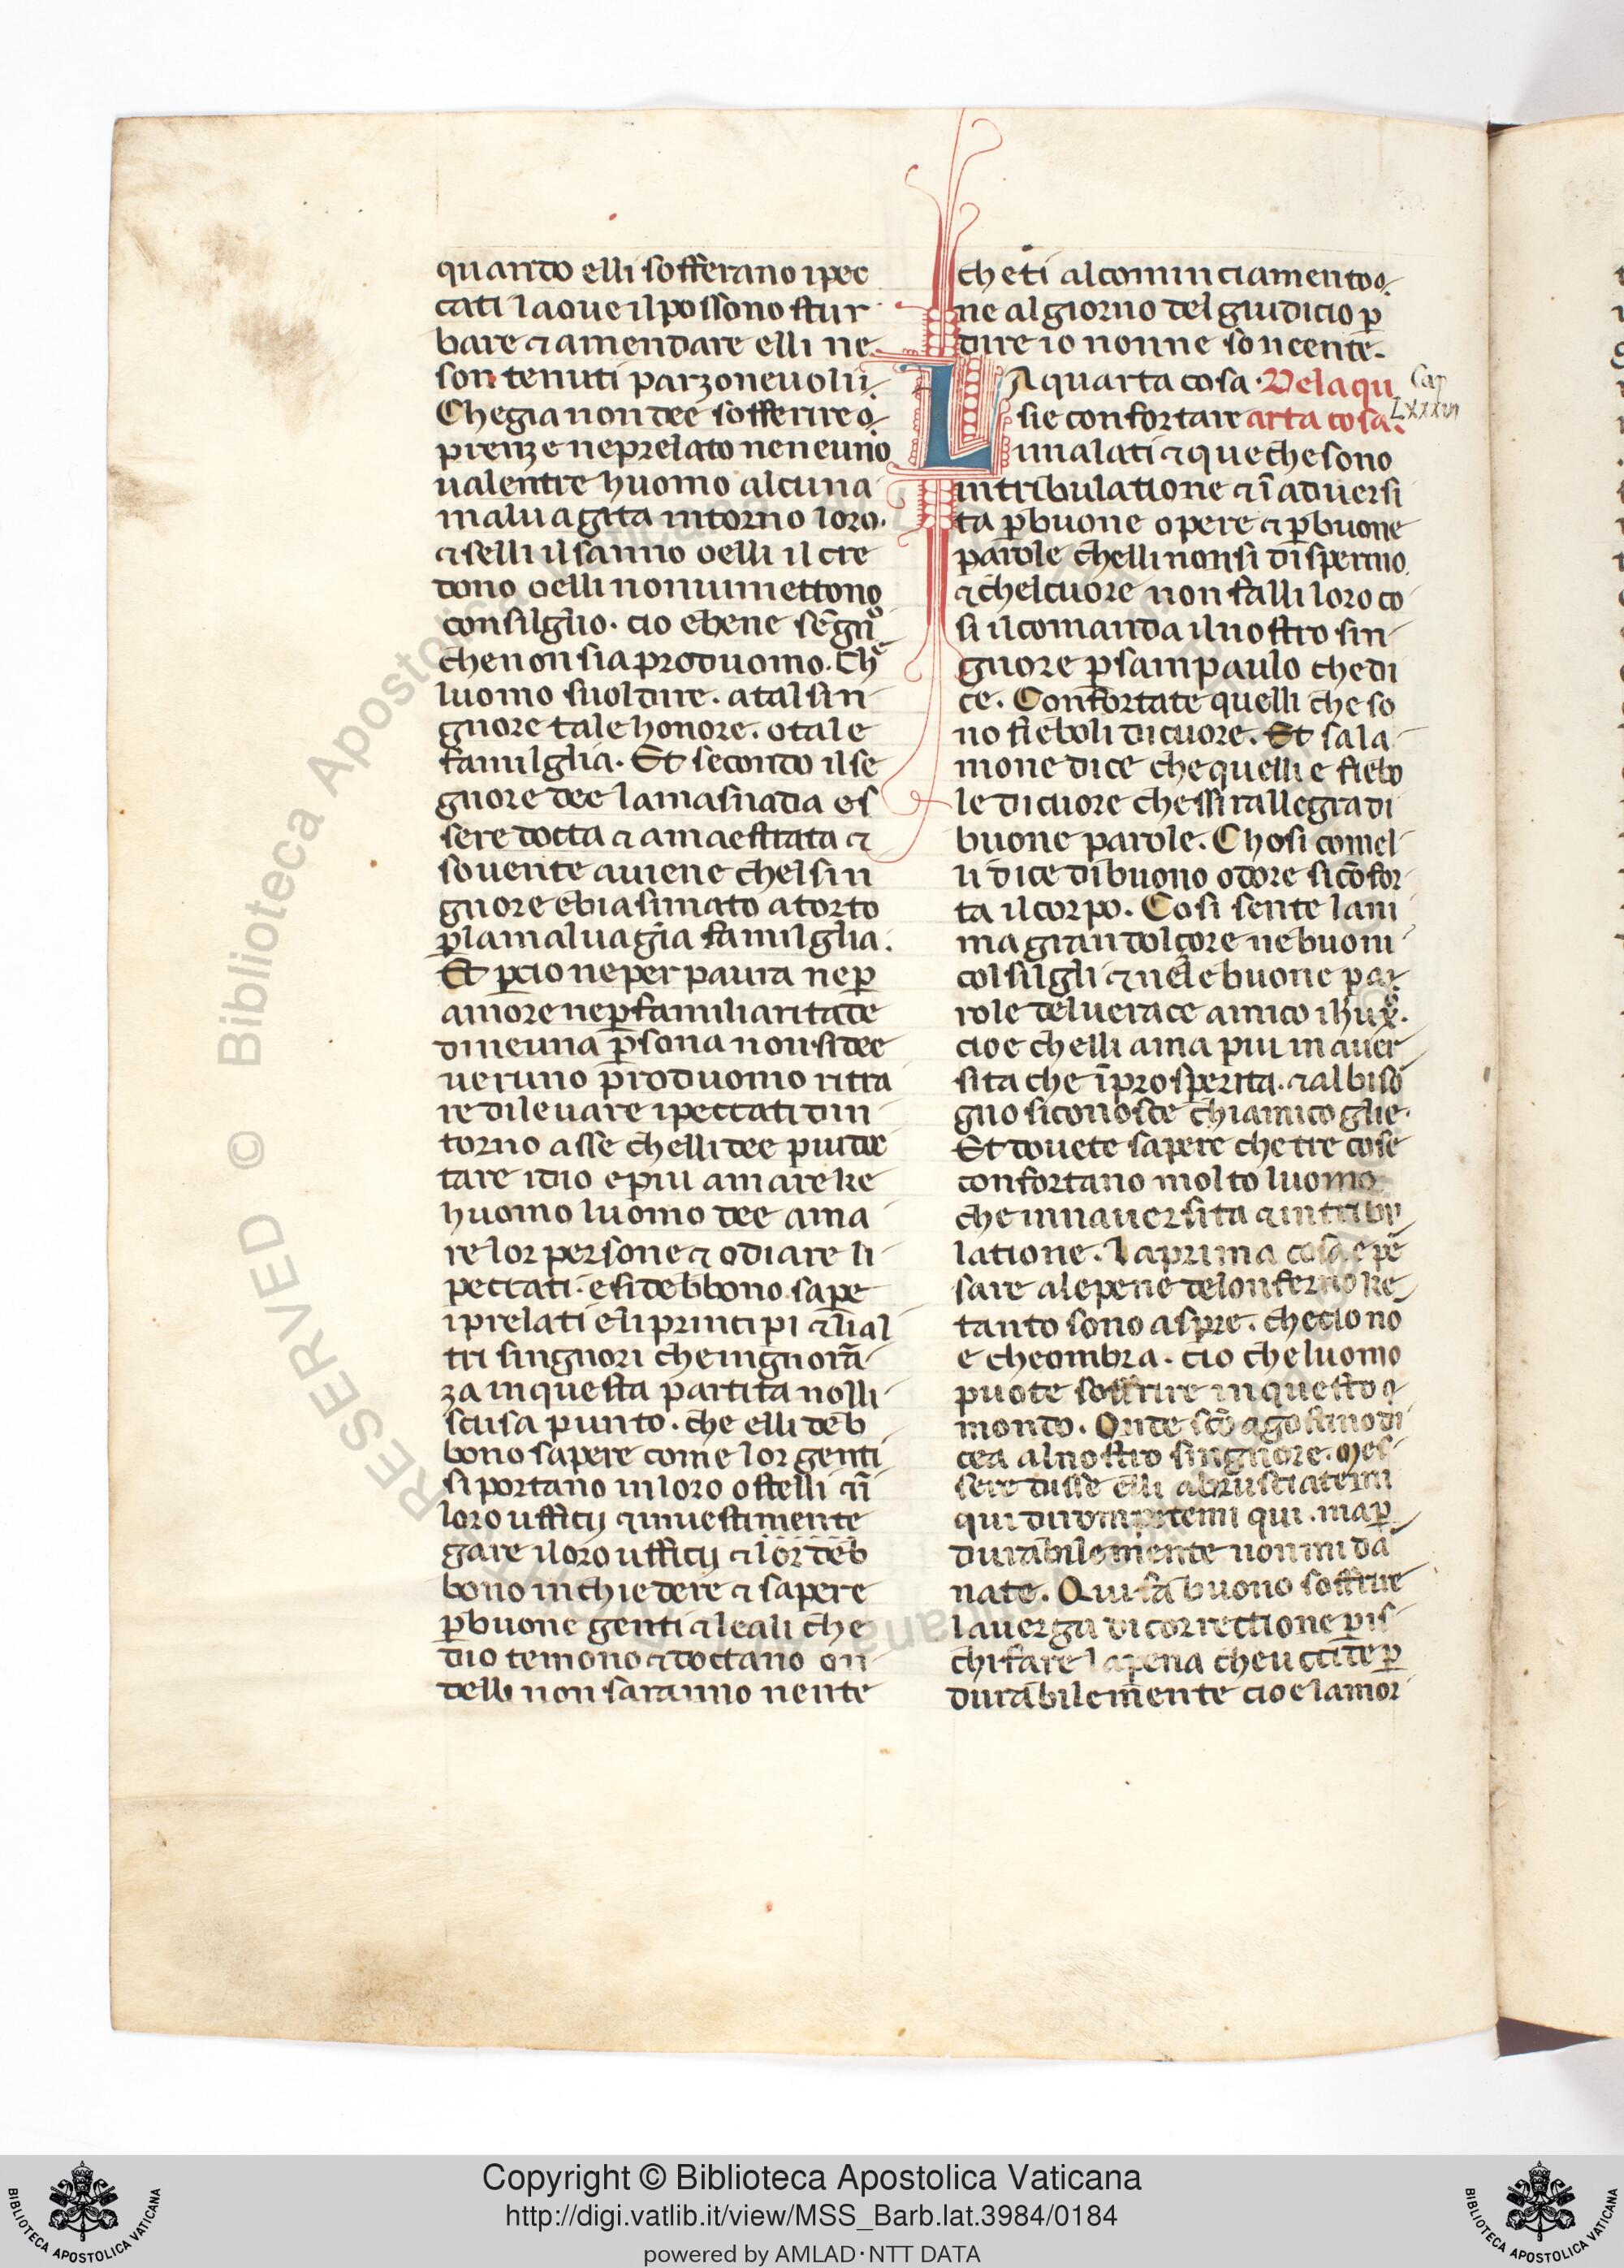 quando elli sofferano i pec
cati la oue il possono stur
bare ⁊ amendare elli ne
son tenuti parzoneuoli
Che gia non dee sofferire
prenze ne prelato ne neuno
ualentre huomo alcuna
maluagita intorno loro.
⁊ selli il sanno o elli il cre
dono o elli non ui mettono
consilglio. cio e bene segn̄o
che non sia produomo. che
luomo suol dire. a tal sin
gnore tale honore. o tale
familglia. Et secondo il se
gnore dee la masnada es
sere docta ⁊ amaestrata ⁊
souente auiene chel sin
gnore e biasimato a torto
ꝑ la maluagia familglia.
Et ꝑcio ne per paura ne ꝑ
amore ne ꝑ familiaritade
di neuna ꝑsona non si dee
ueruno produomo ritra
re di leuare i peccati din
torno asse chelli dee piu doc
tare idio e piu amare ke
huomo luomo dee ama
re lor persone ⁊ odiare li
peccati. e si debbono sape
i prelati e li principi ⁊ li al
tri singnori che ingnorā
za in questa partita nolli
scusa punto. che elli deb
bono sapere come lor genti
si portano in loro ostelli ⁊ ī
loro ufficij ⁊ inuestimente
gare i loro ufficij ⁊ lor deb
bono inchiedere ⁊ sapere
ꝑ buone genti ⁊ leali che
dio temono ⁊ doctano on
delli non saranno nente
cheti al cominciamento
ne al giorno del giudicio ꝑ
dire io nonne so neente.
LA quarta cosa. Dela qu
Cap
sie confortare arta cosa.
i malati ⁊ que che sono
in tribulatione ⁊ ī aduersi
ta ꝑ buone opere ⁊ ꝑ buone
parole chelli non si disperino
⁊ chel cuore non falli loro co
si il comanda il nostro sin
gnore ꝑ sam paulo che di
ce. Confortate quelli che so
no fieboli di cuore. Et sala
mone dice che quelli e fiebo
le di cuore chessi rallegra di
buone parole. Chosi comel
li dice di buono odore si cōfor
ta il corpo. Cosi sente lani
ma gran dolçore ne buoni
colsilgli ⁊ nele buone pa
role del uerace amico
cioe chelli ama piu in auer
sita che ī prosperita. ⁊ al biso
gno si conosce chi amico glie.
Et douete sapere che tre cose
confortano molto luomo
che innauersita ⁊ in tribu
latione. La prima cosa e pē
sare ale pene de lonferno ke
tanto sono aspre. che cio no
e che ombra. cio che luomo
puote soffrire in questo
mondo. Onde sc̄o agostino di
cea al nostro singnore. Mes
sere disse elli abrusciatemi
qui dirompetemi qui. ma ꝑ
durabilemente non mi da
nate. Qui fa buono soffrire
la uerga di correctione ꝑ is
chifare la pena che uccide ꝑ
durabilemente cioe la mor
Copyright © Biblioteca Apostolica Vaticana
http://digi.vatlib.it/view/MSS_Barb.lat.3984/0184
powered by AMLAD·NTT DATA
BIBLIOTECA APOSTOLICA VATICANA
BIBLIOTECA APOSTOLICA VATICANA